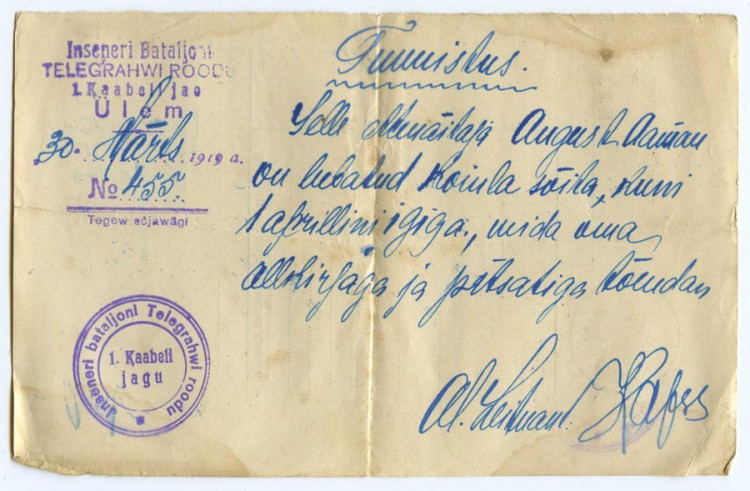 Inseneri Bataljoni
TELEGRAHWI ROODU
1. Kaabeli jao
Ülem
"30" Märts 1919 a.
№ 455.
Tegew sõjawägi
Tunnistus.
Selle ettenäitaja August Aaman
on lubatud Koinla sõita, kuni
1 aprillini 1919 a., mida oma
allkirjaga ja pitsatiga tõendan
Al. Leitnant
Inseneri bataljoni Telegrahwi roodu
1. Kaabeli
jagu